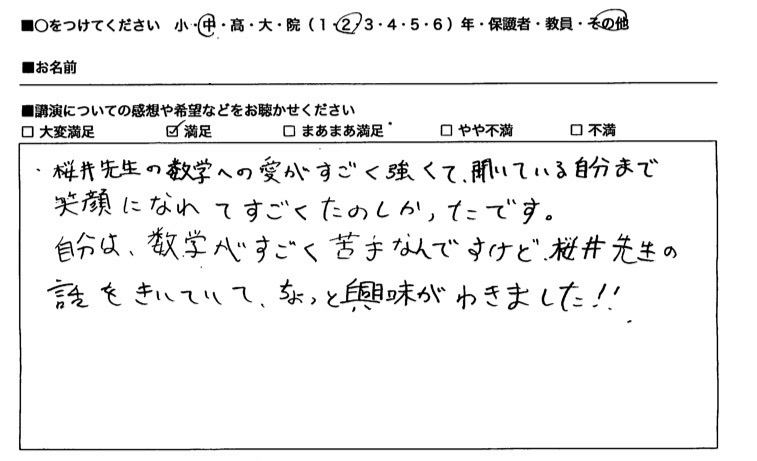 ■○をつけてください 小・中・高・大・院（1・2・3・4・5・6）年・保護者・教員・その他
■お名前
■講演についての感想や希望などをお聴かせください
□ 大変満足 ☑ 満足 □ まあまあ満足 □ やや不満 □ 不満
・桜井先生の数学への愛がすごく強くて、聞いている自分まで
笑顔になれてすごくたのしかったです。
自分は、数学がすごく苦手なんですけど、桜井先生の
話をきいていて、ちょっと興味がわきました!!